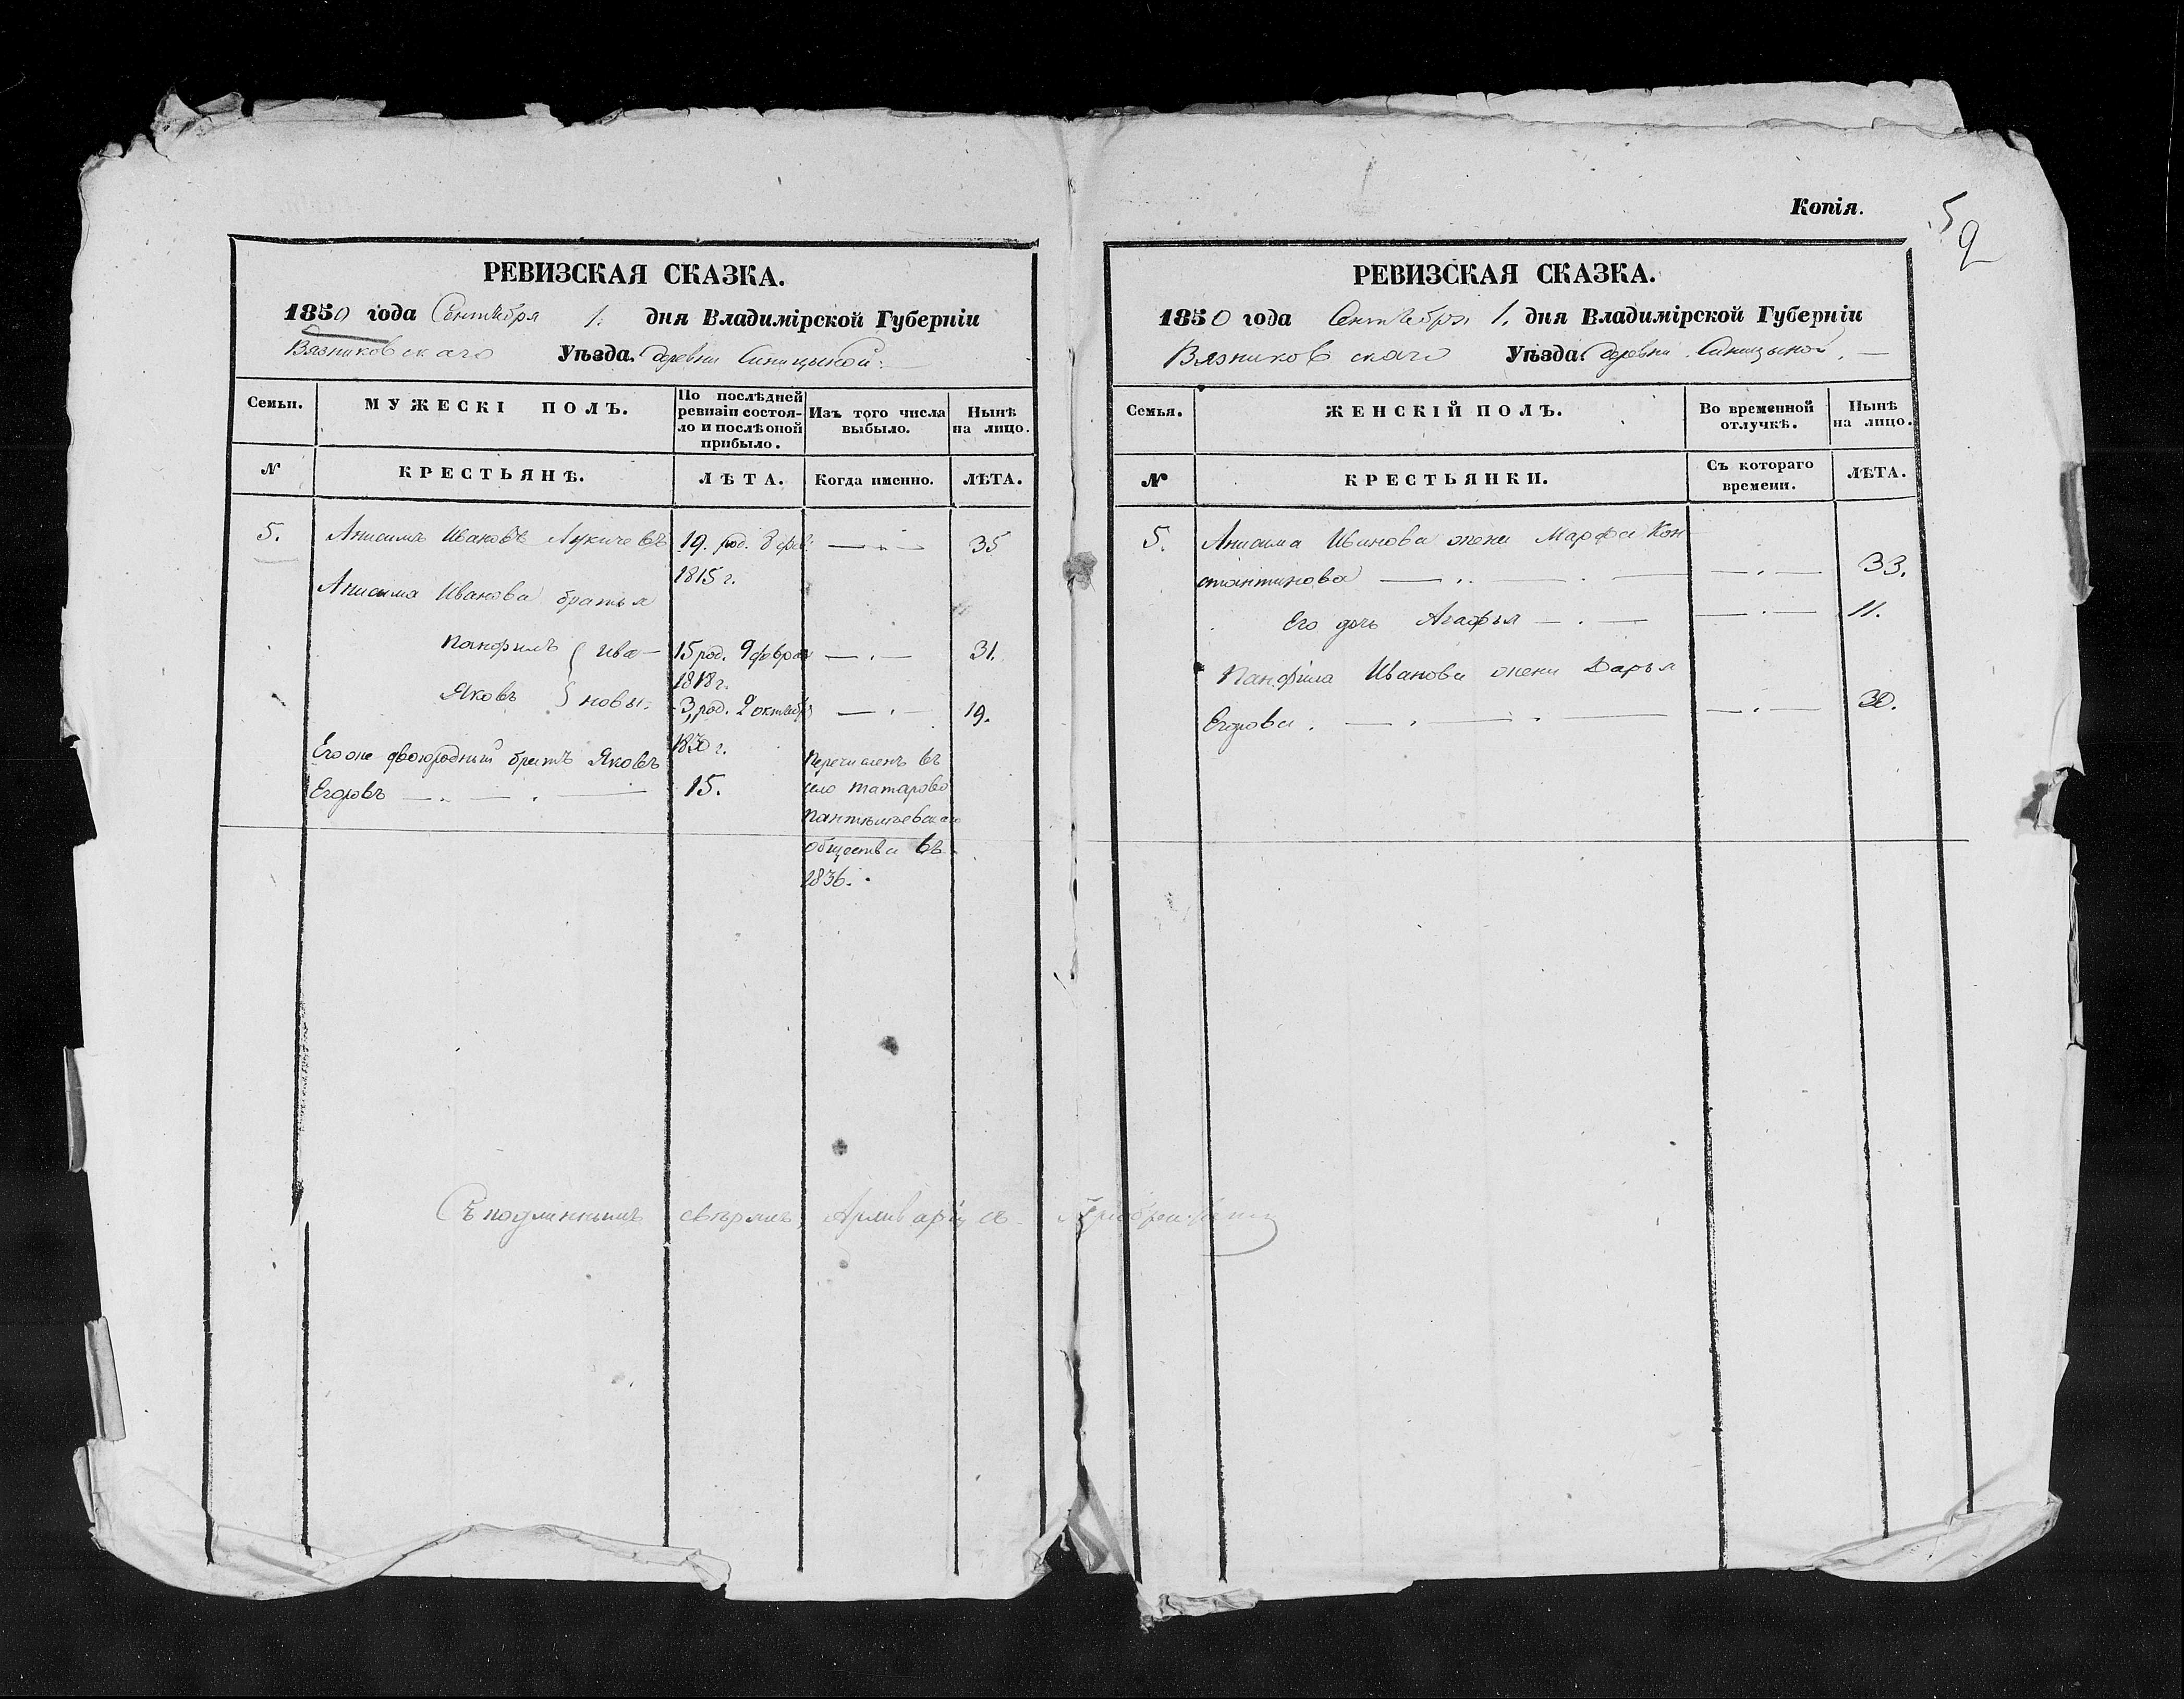 Копія.
5
9
РЕВИЗСКАЯ СКАЗКА.
1850 года Сентября 1. дня Владимірской Губерніи
Вязниковскаго Уѣзда. деревни Синицыной.
Семьи.
МУЖЕСКІ ПОЛЪ.
По послѣдней
ревизіи состоя-
ло и послѣ оной
прибыло.
Изъ того числа
выбыло.
Нынѣ
на лицо.
№
КРЕСТЬЯНѢ.
ЛѢТА.
Когда именно.
ЛѢТА.
5. Анисимъ Ивановъ Лукичевъ 19. род. 8 фев. — 35
1815 г.
Анисима Иванова братья
Панфилъ { Ива- 15 род. 9 февраля — . — 31.
1818 г.
Яковъ } новы. 3, род. 2 октября — . — 19.
1830 г.
Его же двоюродный братъ Яковъ
Егоровъ — . — . — 15.
Перечисленъ въ
село Татарово
общества въ
1836.
Съ подлиннымъ свѣрялъ, Архиваріусъ
РЕВИЗСКАЯ СКАЗКА.
1850 года Сентября 1. дня Владимірской Губерніи
Вязниковскаго Уѣзда. деревни Синицыной. —
Семья.
ЖЕНСКІЙ ПОЛЪ.
Во временной
отлучкѣ.
Нынѣ
на лицо.
№
КРЕСТЬЯНКИ.
Съ котораго
времени.
ЛѢТА.
5. Анисима Иванова жена Марфа Кон
стантинова — . . — . — — . — 33.
Его дочь Агафья — . — — . — 11.
Панфила Иванова жена Дарья
Егорова. — . — . — — . — 30.